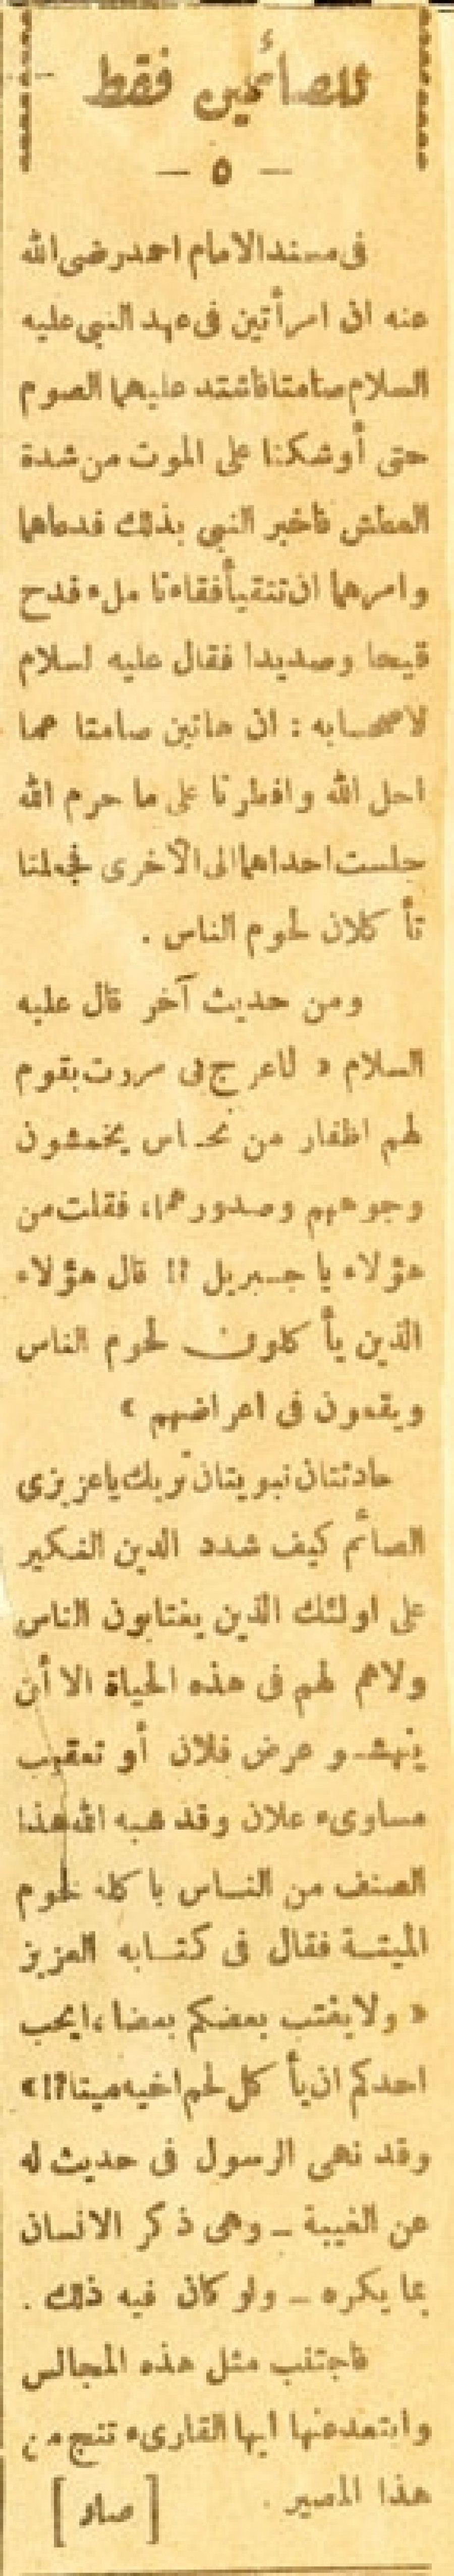 للصائمين فقط
— ٥ —
فى مسند الامام احمد رضى الله
عنه ان امرأتين فى عهد النبى عليه
السلام صامتا فاشتد عليهما الصوم
حتى أوشكنا على الموت من شدة
العطش فاخبر النبى بذلك فدعاهما
وامرهما ان تتقيأ فقاءتا ملء قدح
قيحا وصديدا فقال عليه لسلام
لاصحابه : ان هاتين صامتا عما
احل الله وافطرتا على ما حرم الله
جلست احداهما الى الآخرى فجعلتا
تأ كلان لحوم الناس .
ومن حديث آخر قال عليه
السلام « لما عرج بى مررت بقوم
لهم اظفار من نحاس يخمشون
وجوههم وصدورهما، فقلت من
هؤلاء يا جبريل ؟! قال هؤلاء
الذين يأ كلون لحوم الناس
ويقعون فى اعراضهم »
حادثتان نبويتان تربك ياعزيزى
الصائم كيف شدد الدين النكير
على اولئك الذين يغتابون الناس
ولاهم لهم فى هذه الحياة الا أن
ينهشو عرض فلان أو تعقيب
مساوىء علان وقد شبه الله هذا
الصنف من الناس باكله لحوم
الميتة فقال فى كتابه العزيز
« ولا يغتب بعضكم بعضا، ايحب
احدكم ان يأ كل لحم اخيه ميتا؟! »
وقد نهى الرسول فى حديث له
عن الغيبة – وهى ذكر الانسان
بما يكره – ولو كان فيه ذلك .
فاجتنب مثل هذه المجالس
وابتعد عنها ايها القارىء تنج من
هذا المصير .
[ صاد ]